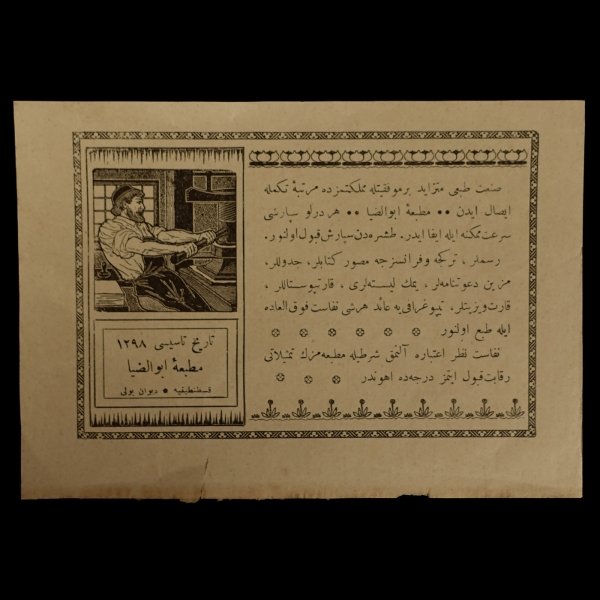 صنعت طبعی متزاید بر موفقیتله مملکتمزده مرتبهٔ تکمله
ایصال ایدن •• مطبعهٔ ابوالضیا •• هر درلو سپارشی
سرعت ممکنه ایله ایفا ایدر. طشره‌دن سپارش قبول اولنور.
رسملر، ترکجه و فرانسزجه مصور کتابلر، جدوللر،
مزین دعوتنامه‌لر، یمك لیسته‌لری، قارتپوستاللر،
قارت ویزیتلر، تیپوغرافی‌یه عائد هر شی نفاست فوق العاده
ایله طبع اولنور
نفاست نظر اعتباره آلنمق شرطیله مطبعه‌مزك تمثیلاتی
رقابت قبول ایتمز درجه‌ده اهوندر.
تاریخ تأسیسی ۱۲۹۸
مطبعهٔ ابوالضیا
قسطنطینیه • دیوان یولی